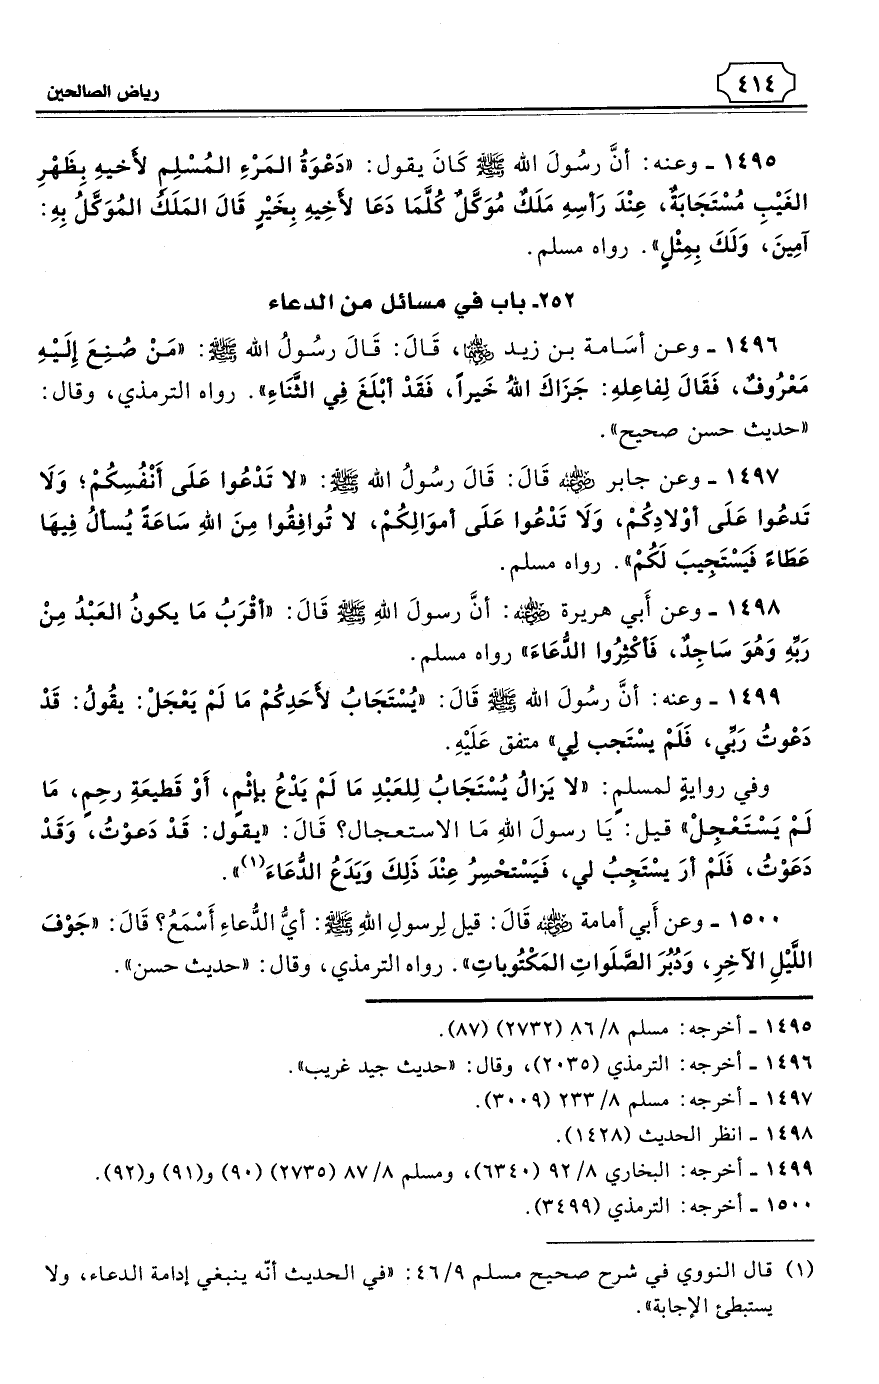 ٤١٤
رياض الصالحين
١٤٩٥ ـ وعنه: أنَّ رسُولَ الله ﷺ كَانَ يقول: «دَعْوَةُ المَرْءِ المُسْلِمِ لأَخيهِ بِظَهْرِ
الغَيْبِ مُسْتَجَابَةٌ، عِنْدَ رَأسِهِ مَلَكٌ مُوَكَّلٌ كُلَّمَا دَعَا لأَخِيهِ بِخَيْرٍ قَالَ المَلَكُ المُوَكَّلُ بِهِ:
آمِينَ، وَلَكَ بِمِثْلٍ». رواه مسلم.
٢٥٢ـ باب في مسائل من الدعاء
١٤٩٦ ـ وعـن أسَـامـة بـن زيـد ﵄، قَـالَ: قَـالَ رسُولُ الله ﷺ: «مَـنْ صُـنِـعَ إِلَـيْـهِ
مَعْرُوفٌ، فَقَالَ لِفاعِلهِ: جَزَاكَ اللهُ خَيراً، فَقَدْ أبْلَغَ فِي الثَّنَاءِ». رواه الترمذي، وقال:
«حديث حسن صحيح».
١٤٩٧ ـ وعن جابر ﵁ قَالَ: قَالَ رسُولُ الله ﷺ: «لا تَدْعُوا عَلَى أنْفُسِكُمْ؛ وَلَا
تَدعُوا عَلَى أوْلادِكُمْ، وَلَا تَدْعُوا عَلَى أموَالِكُمْ، لا تُوافِقُوا مِنَ اللهِ سَاعَةً يُسألُ فِيهَا
عَطَاءً فَيَسْتَجِيبَ لَكُمْ». رواه مسلم.
١٤٩٨ ـ وعن أَبي هريرة ﵁: أنَّ رسولَ اللهِ ﷺ قَالَ: «أقْرَبُ مَا يكونُ العَبْدُ مِنْ
رَبِّهِ وَهُوَ سَاجِدٌ، فَأكْثِرُوا الدُّعَاءَ» رواه مسلم.
١٤٩٩ ـ وعنه: أنَّ رسُولَ الله ﷺ قَالَ: «يُسْتَجَابُ لأَحَدِكُمْ مَا لَمْ يَعْجَلْ: يقُولُ: قَدْ
دَعْوتُ رَبِّي، فَلَمْ يسْتَجب لِي» متفق عَلَيْهِ.
وفي روايةٍ لمسلمٍ: «لا يَزالُ يُسْتَجَابُ لِلعَبْدِ مَا لَمْ يَدْعُ بإثْمٍ، أَوْ قَطيعَةِ رحِمٍ، مَا
لَمْ يَسْتَعْجِلْ» قيل: يَا رسولَ اللهِ مَا الاستعجال؟ قَالَ: «يقول: قَدْ دَعوْتُ، وَقَدْ
دَعَوْتُ، فَلَمْ أرَ يسْتَجِبُ لي، فَيَسْتحْسِرُ عِنْدَ ذَلِكَ وَيَدَعُ الدُّعَاءَ(١)».
١٥٠٠ ـ وعن أَبي أمامة ﵁ قَالَ: قيل لِرسولِ اللهِ ﷺ: أيُّ الدُّعاءِ أَسْمَعُ؟ قَالَ: «جَوْفَ
اللَّيْلِ الآخِرِ، وَدُبُرَ الصَّلَواتِ المَكْتُوباتِ». رواه الترمذي، وقال: «حديث حسن».
١٤٩٥ ـ أخرجه: مسلم ٨/ ٨٦ (٢٧٣٢) (٨٧).
١٤٩٦ ـ أخرجه: الترمذي (٢٠٣٥)، وقال: «حديث جيد غريب».
١٤٩٧ ـ أخرجه: مسلم ٨/ ٢٣٣ (٣٠٠٩).
١٤٩٨ ـ انظر الحديث (١٤٢٨).
١٤٩٩ ـ أخرجه: البخاري ٨/ ٩٢ (٦٣٤٠)، ومسلم ٨/ ٨٧ (٢٧٣٥) (٩٠) و(٩١) و(٩٢).
١٥٠٠ ـ أخرجه: الترمذي (٣٤٩٩).
(١) قال النووي في شرح صحيح مسلم ٩/ ٤٦: «في الحديث أنّه ينبغي إدامة الدعاء، ولا
يستبطئ الإجابة».